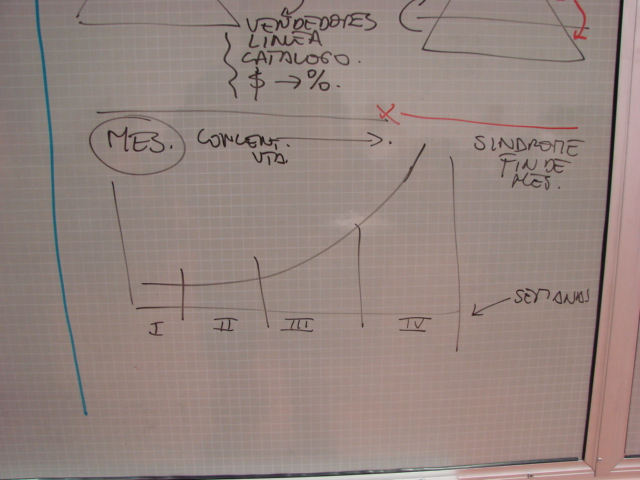 VENDEDORES
LINEA
CATALOGO.
$ → %.
X
MES. CONCENT. → .
VTA.
SINDROME
FIN DE
MES.
SEMANAS
I II III IV